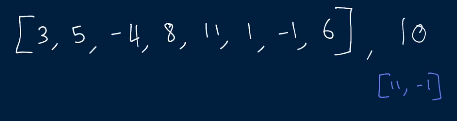 [3, 5, -4, 8, 11, 1, -1, 6], 10
[11, -1]